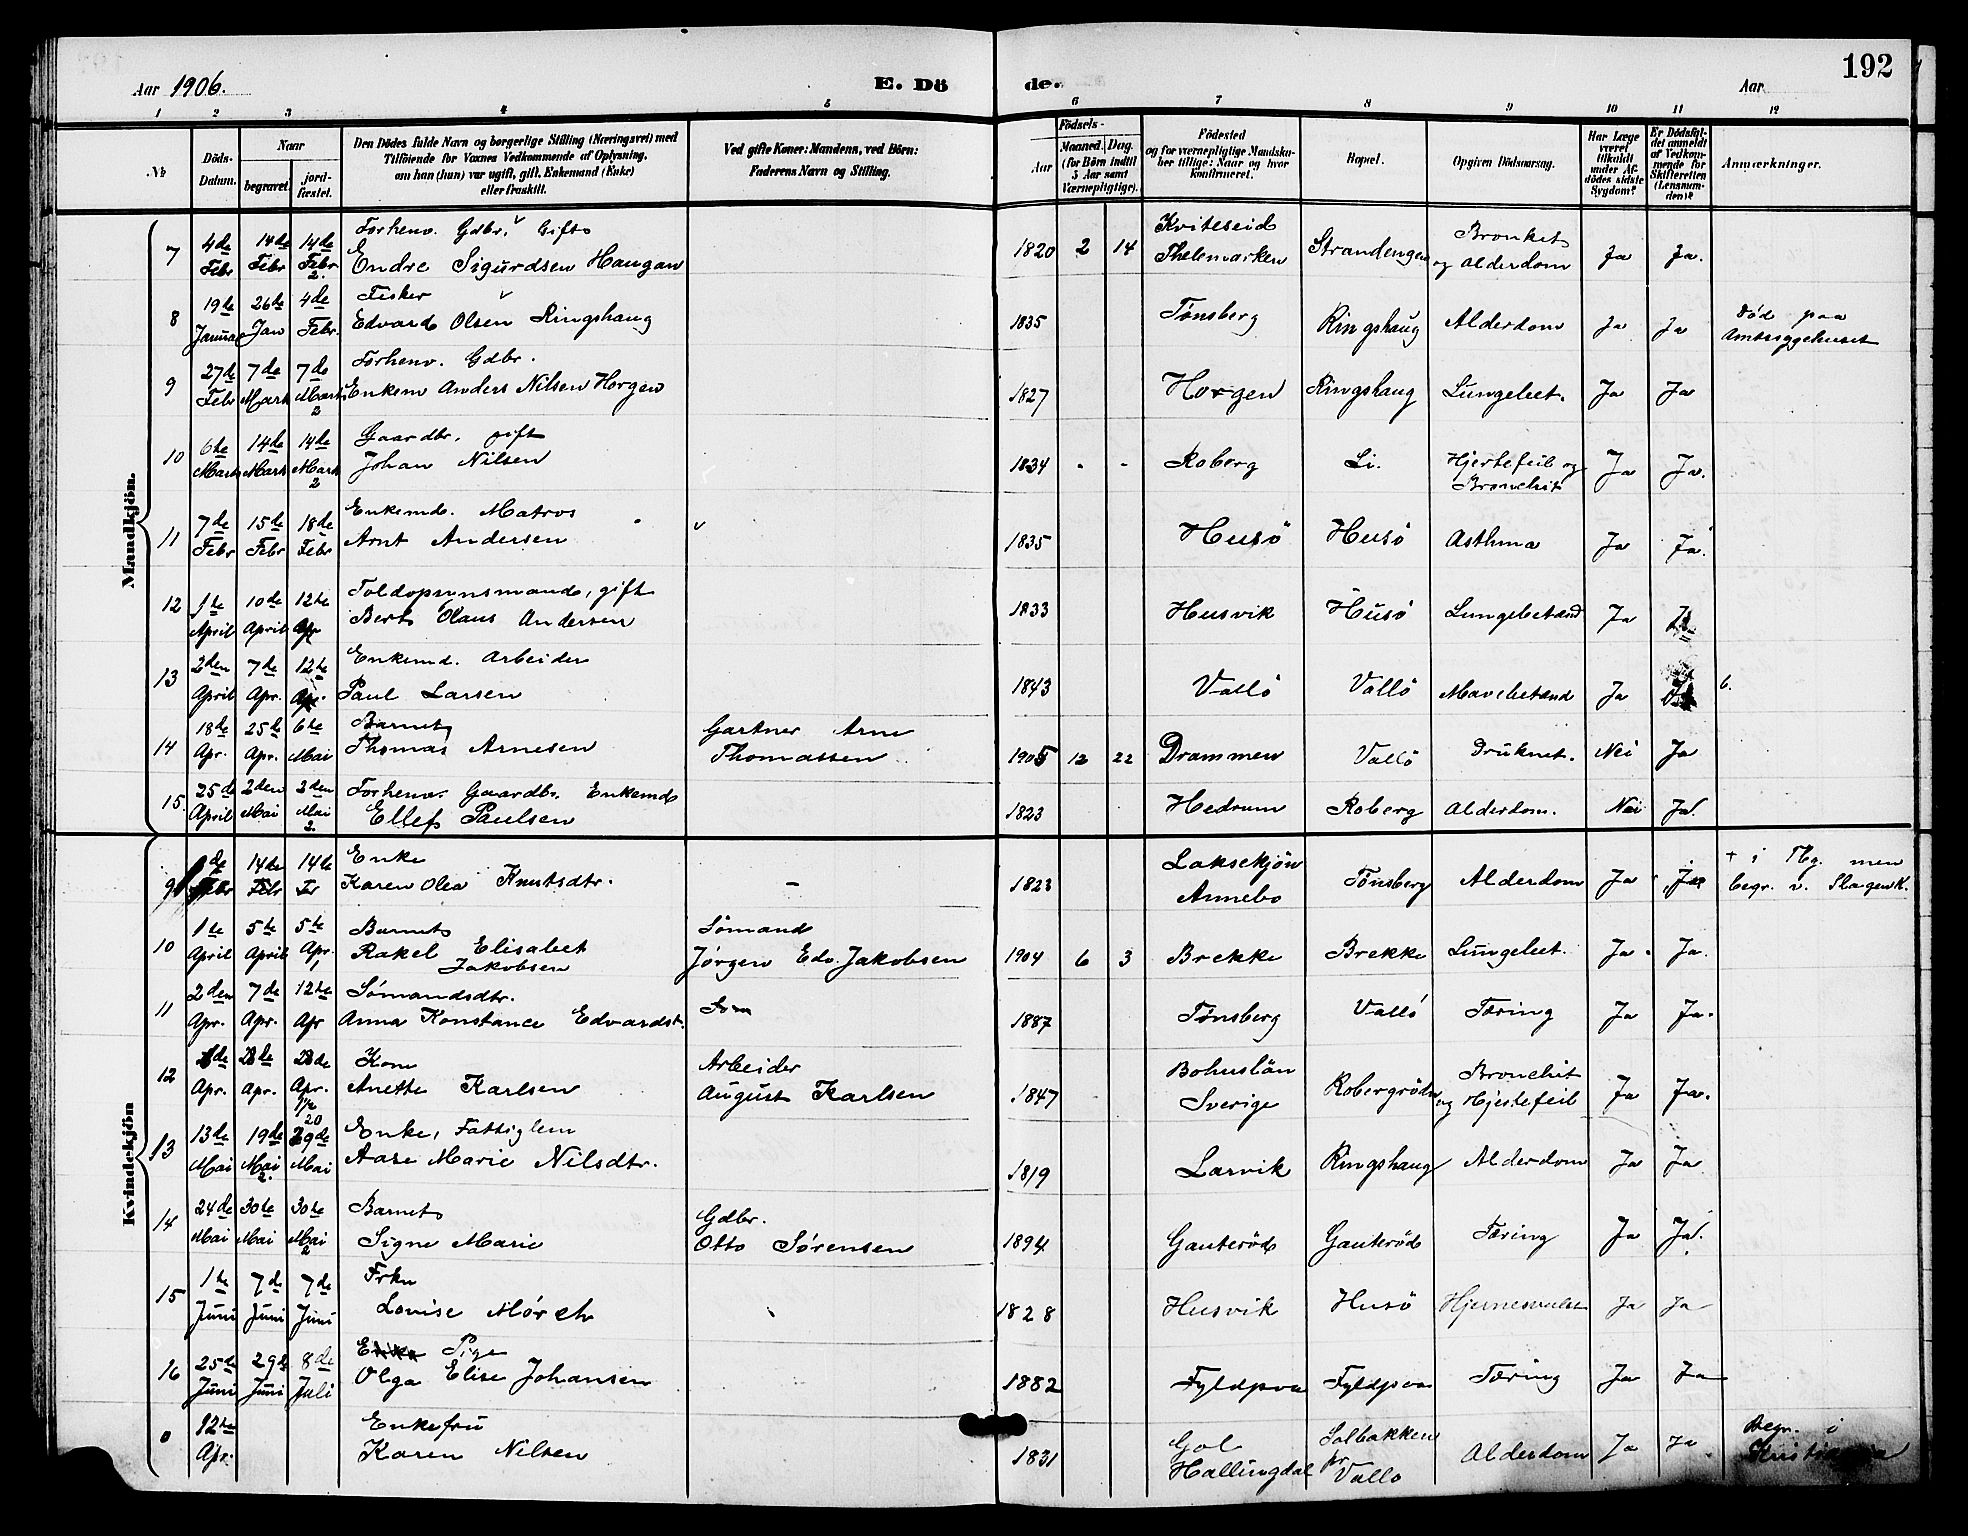 192
Aar 1906.
E. Dö
de.
Aar
1 2 3 4 5 6 7 8 9 10 11 12
No
Döds-Datum.
Naar
begravet.
jord-fæstet.
Den Dödes fulde Navn og borgerlige Stilling (Næringsvei) med
Tilföiende for Voxnes Vedkommende af Oplysning,
om han (hun) var ugift, gift, Enkemand (Enke)
eller fraskilt.
Ved gifte Koner: Mandens, ved Börn:
Faderens Navn og Stilling.
Födsels-
Aar
Maaned. Dag.
(for Börn indtil
5 Aar samt
Værnepligtige).
Födested
og for værnepligtige Mandska-
ber tillige: Naar og hvor
konfirmeret.
Bopæl.
Opgiven Dödsaarsag.
Har Læge
været
tilkaldt
under Af-
dödes sidste
Sygdom?
Er Dödsfal-
det anmeldt
af Vedkom-
mende for
Skifteretten
(Lensman-
den)?
Anmærkninger.
Mandkjön.
7 4de Febr 14de Febr 14de Febr 2. Forhenv. Gdbr. Gift Endre Sigurdsen Haugan 1820 2 14 Kviteseid Thelemarken Strandengen Bronkit og Alderdom Ja Ja.
8 19de Januar 26de Jan 4de Febr. Fisker Edvard Olsen Ringshaug 1835 Tønsberg Ringshaug Alderdom Ja Ja Død paa Amtssygehuset
9 27de Febr 7de Marts 7de Marts 2 Forhenv. Gdbr. Enkem Anders Nilsen Horgen 1827 Horgen Ringshaug Lungebet. Ja Ja
10 6te Marts 14de Marts 14de Marts 2 Gaardbr. gift Johan Nilsen 1834 - - Roberg Li. Hjertefeil og Bronchit Ja Ja.
11 7de Febr 15de Febr 18de Febr Enkemd. Matros Arnt Andersen 1835 Husö Husö Asthma Ja Ja.
12 1te April 10de April 12te Apr Toldopsynsmand, gift Bert Olaus Andersen 1833 Husvik Husö Lungebetænd Ja Ja
13 2den April 7de Apr. 12te Apr. Enkemd. Arbeider Paul Larsen 1843 Vallö Vallö Mavebetænd Ja Ja 6.
14 18de Apr. 25de Apr. 6te Mai Barnet Thomas Arnesen Gartner Arne Thomassen 1905 12 22 Drammen Vallö Druknet. Nei Ja
15. 25de April 2den Mai 2den Mai 2. Forhenv. Gaardbr. Enkemd Ellef Paulsen 1823 Hedrum Roberg Alderdom. Nei Ja.
Kvindekjön
9 Febr 14de Febr 14de Fr Enke Karen Olea Knutsdtr. - 1823 Laksekjön Arnebo Tönsberg Alderdom Ja Ja + i Tbg. men begr. v. Slagen K.
10 1te April 5te April 5te Apr. 1 Barnet Rakel Elisabet Jakobsen Sømand Jørgen Edv. Jakobsen 1904 6 3 Brekke Brekke Lungebet. Ja Ja.
11 2den Apr. 7de Apr. 12te Apr Sømandsdtr. Anna Konstance Edvardst. 1887 Tønsberg Vallö Tæring Ja Ja.
12 Apr. 28de Apr. 28de Apr. Kone Anette Karlsen Arbeider August Karlsen 1847 Bohuslän Sverige Robergröd Bronchit og Hjertefeil Ja Ja.
13 13de Mai 19de Mai 2. 20 29de Mai Enke, Fattiglem Aase Marie Nilsdtr. 1819 Larvik Ringshaug Alderdom Ja Ja.
14 24de Mai 30te Mai 30te Mai 2 Barnet Signe Marie Gdbr. Otto Sørensen 1894 Gauteröd Gauteröd Tæring Ja Ja.
15 1te Juni 7de Juni 7de Juni Frkn Lovise Mörch 1828 Husvik Husö Hjernesvulst Ja Ja
16 25de Juni 29de Juni 8de Juli Enke Pige Olga Elise Johansen 1882 Fyldpaa Fyldpaa Tæring Ja Ja
0 12te Apr. Enkefru Karen Nilsen 1831 Gol Hallingdal Solbakken pr Vallö Alderdom Ja Ja Begr. i Kristiania